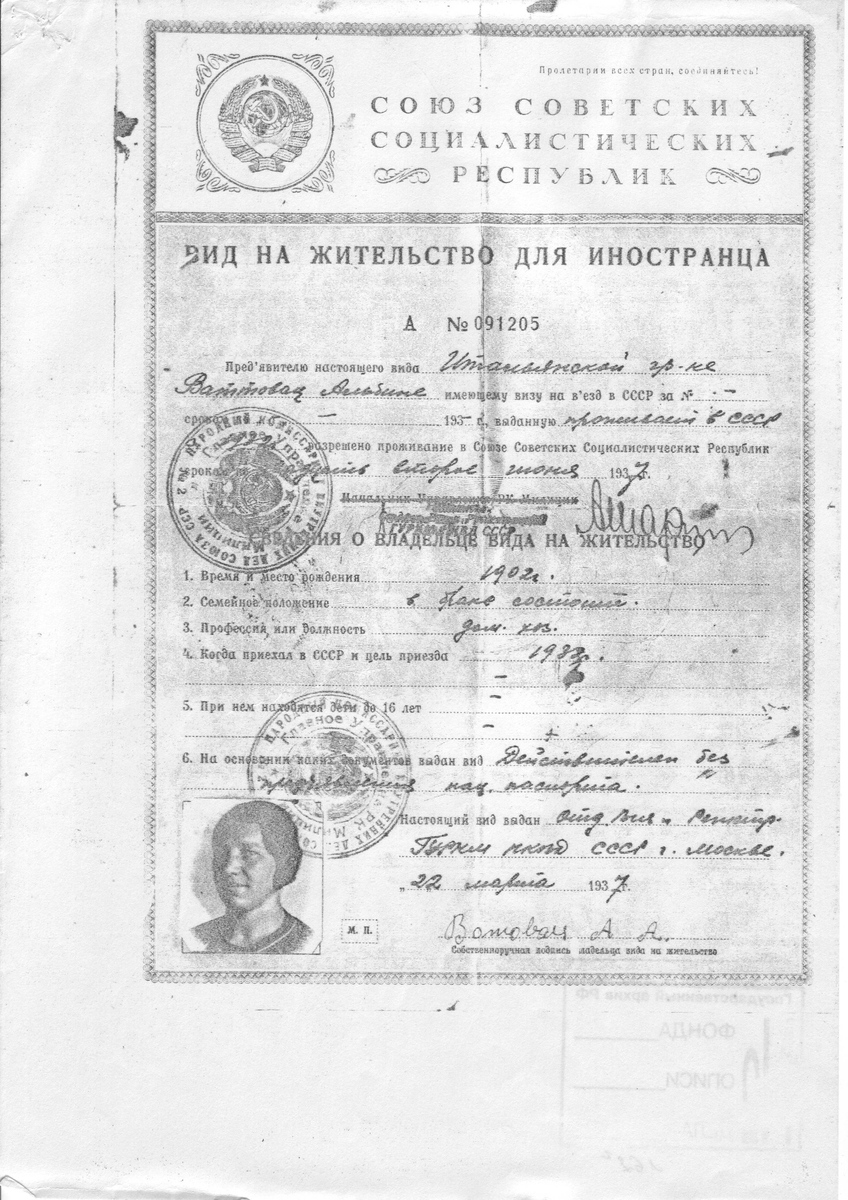 Пролетарии всех стран, соединяйтесь!
СОЮЗ СОВЕТСКИХ
СОЦИАЛИСТИЧЕСКИХ
РЕСПУБЛИК
ВИД НА ЖИТЕЛЬСТВО ДЛЯ ИНОСТРАНЦА
А № 091205
Пред'явителю настоящего вида Итальянской гр-ке
Ваттовац Альбине имеющему визу на в'езд в СССР за № –
сроком – 193– г., выданную проживает в СССР
разрешено проживание в Союзе Советских Социалистических Республик
сроком второе июня 1937 г.
Начальник Управления РК Милиции
ГУРКМ НКВД СССР
СВЕДЕНИЯ О ВЛАДЕЛЬЦЕ ВИДА НА ЖИТЕЛЬСТВО
1. Время и место рождения 1902 г.
2. Семейное положение в браке состоит.
3. Профессия или должность дом. хоз.
4. Когда приехал в СССР и цель приезда 1932 г.
–
5. При нем находятся дети до 16 лет –
–
6. На основании каких документов выдан вид Действителен без
предъявления нац. паспорта.
Настоящий вид выдан Отд Виз и Регистр.
ГУРКМ НКВД СССР г. Москве.
„22 марта 1937 г.
М. П.
Вотовац А. А.
Собственноручная подпись владельца вида на жительство
НАРОДНЫЙ КОМИССАРИАТ ВНУТРЕННИХ ДЕЛ СОЮЗА ССР
Главное Управление РК Милиции
№ 2
НАРОДНЫЙ КОМИССАРИАТ ВНУТРЕННИХ ДЕЛ
Главное Управление РК Милиции
Государственный архив РФ
ФОНДА
ОПИСИ